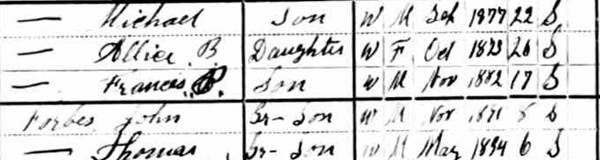 — Michael Son W M Feb 1877 22 S
— Allice B. Daughter W F Oct 1873 26 S
— Francis P. Son W M Nov 1882 17 S
Forbes John Gr-Son W M Nov 1891 8 S
— Thomas Gr-Son W M May 1894 6 S